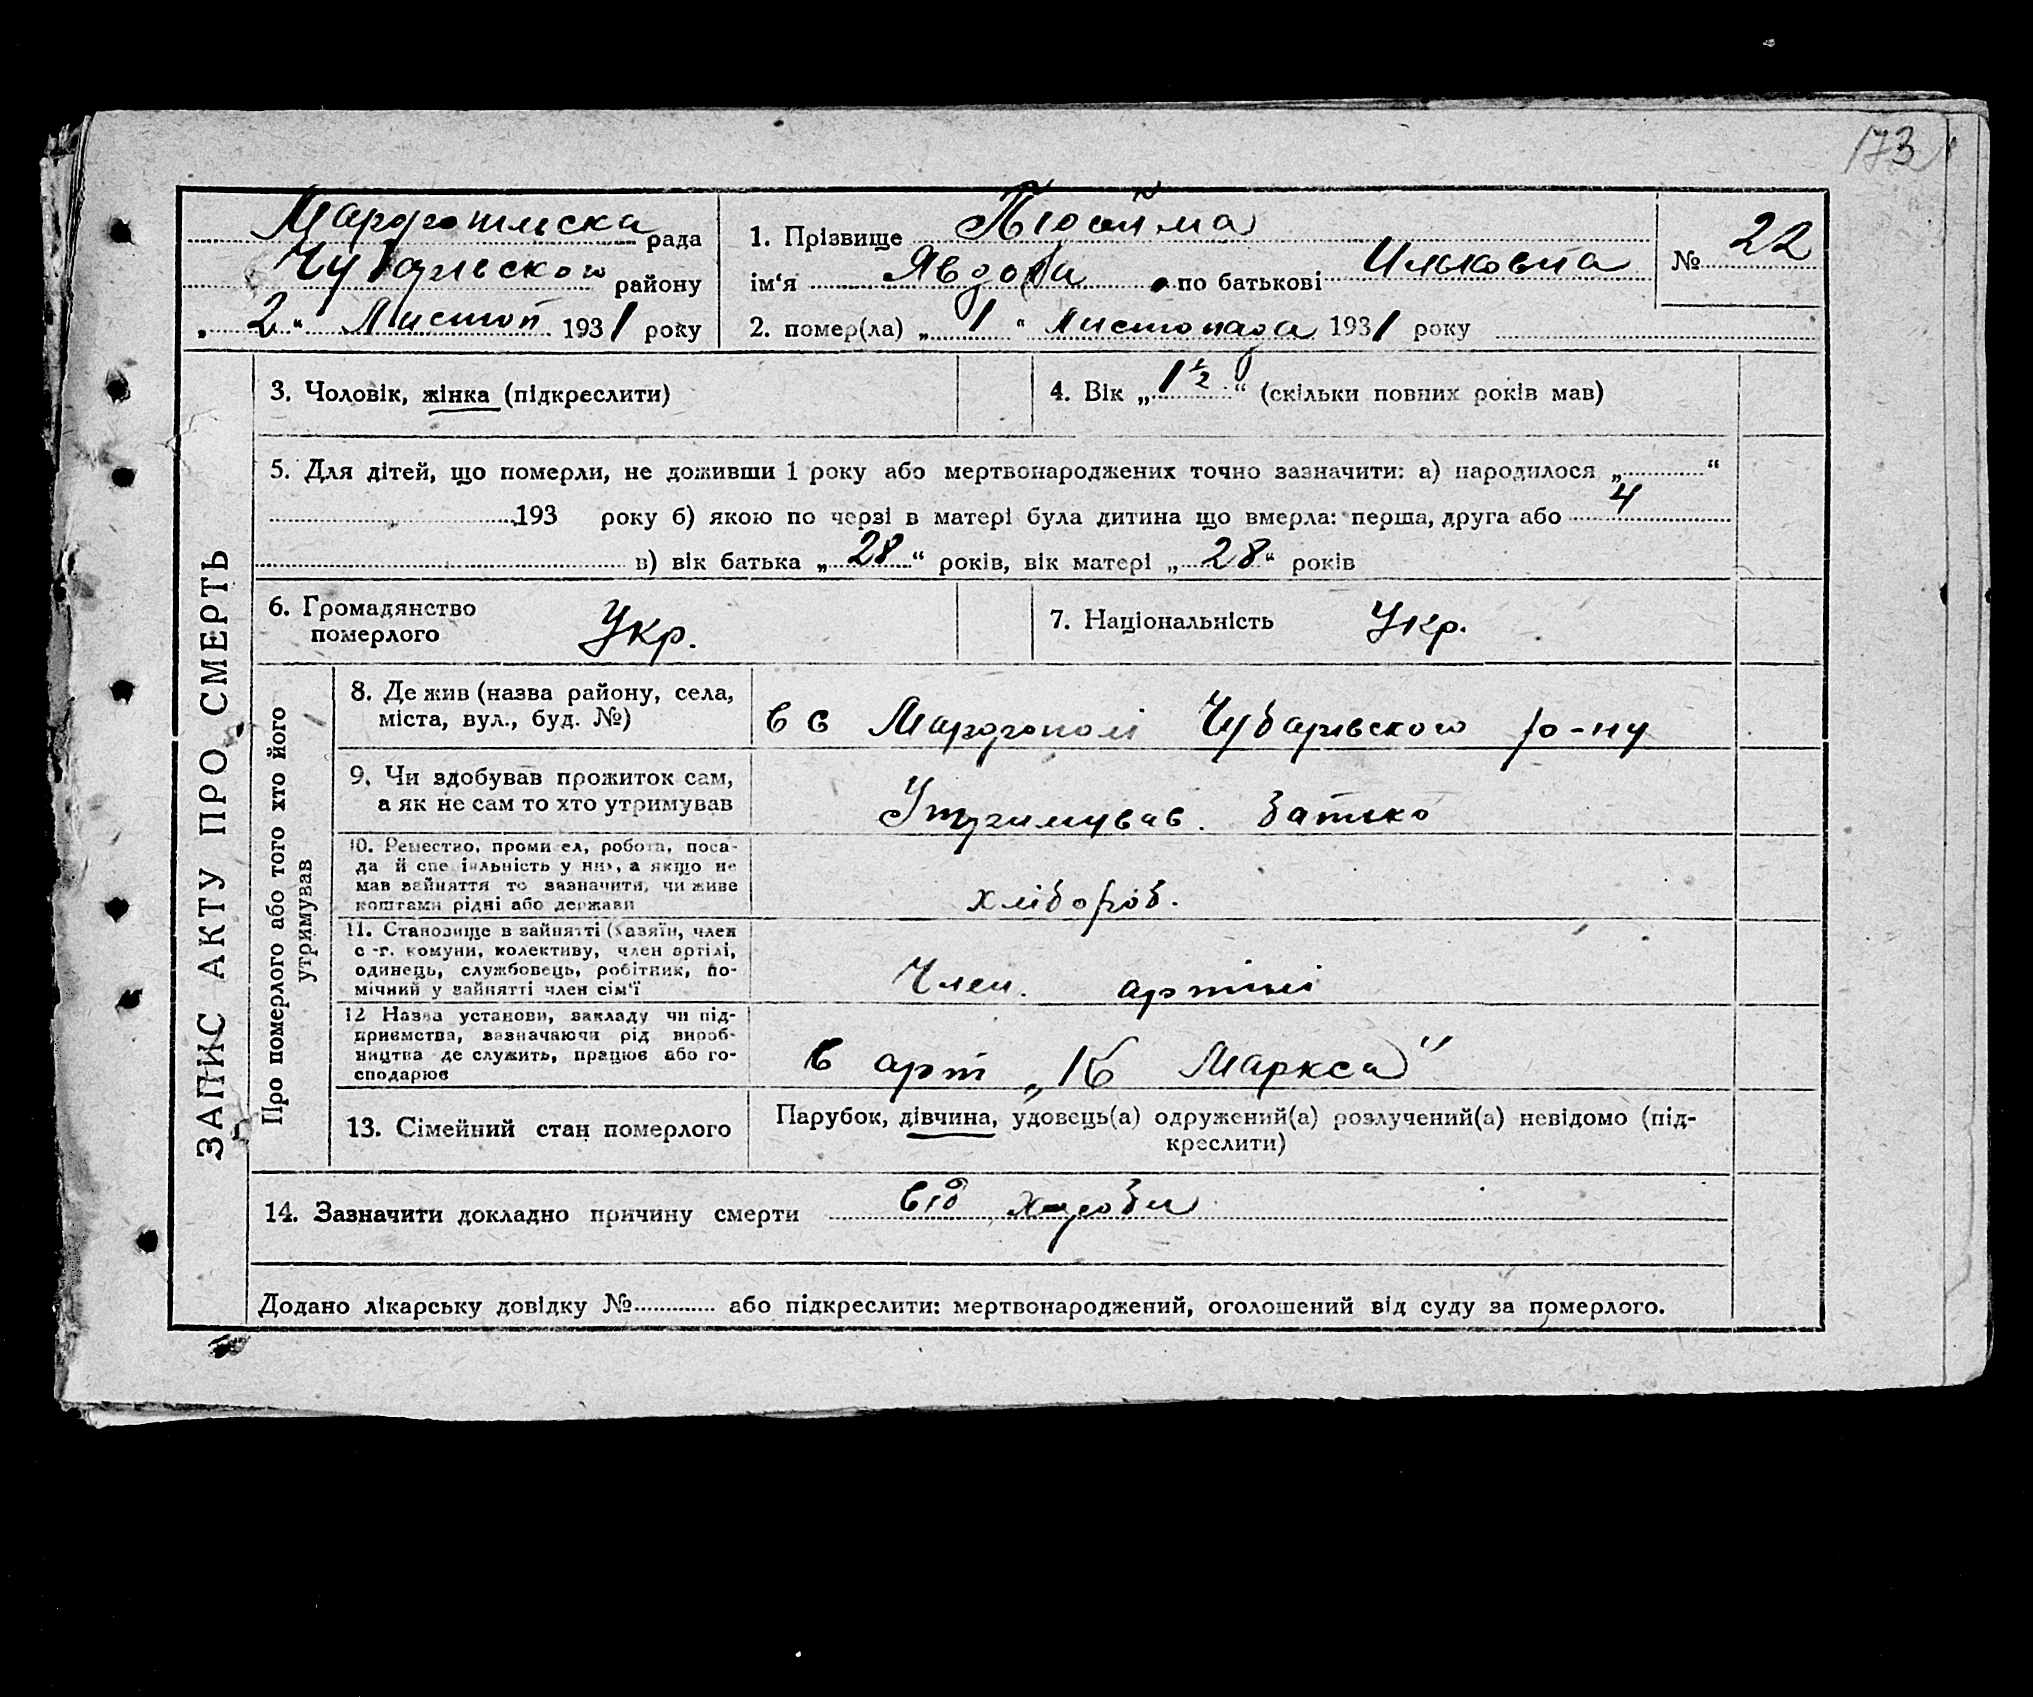 173
Марфопільска рада
Чубарівського району
„ 2 “ Листоп 1931 року
1. Прізвище
ім‘я Явдоха по батькові Ильковна
2. помер(ла) „ 1 “ Листопада 1931 року
№ 22
3. Чоловік, жінка (підкреслити)
4. Вік „ 1 1/2 “ (скільки повних років мав)
5. Для дітей, що померли, не доживши 1 року або мертвонароджених точно зазначити: а) народилося „ “
193 року б) якою по черзі в матері була дитина що вмерла: перша, друга або 4
в) вік батька „ 28 “ років, вік матері „ 28 “ років
6. Громадянство
померлого Укр.
7. Національність Укр.
ЗАПИС АКТУ ПРО СМЕРТЬ
Про померлого або того хто його
утримував
8. Де жив (назва району, села,
міста, вул., буд. №)
в с Марфополі Чубарівського р-ну
9. Чи здобував прожиток сам,
а як не сам то хто утримував
Утримував. батько
10. Ремество, промисел, робота, поса-
да й спеціальність у них, а якщо не
мав зайняття то зазначити, чи живе
коштами рідні або держави
хлібороб.
11. Становище в зайнятті (хазяїн, член
с-г. комуни, колективу, член артілі,
одинець, службовець, робітник, по-
мічний у зайнятті член сім‘ї
Член. артілі
12 Назва установи, закладу чи під-
приємства, зазначаючи рід вироб-
ництва де служить, працює або го-
сподарює
в арт „К Маркса"
13. Сімейний стан померлого
Парубок, дівчина, удовець(а) одружений(а) розлучений(а) невідомо (під-
креслити)
14. Зазначити докладно причину смерти від хвороби
Додано лікарську довідку № або підкреслити: мертвонароджений, оголошений від суду за померлого.